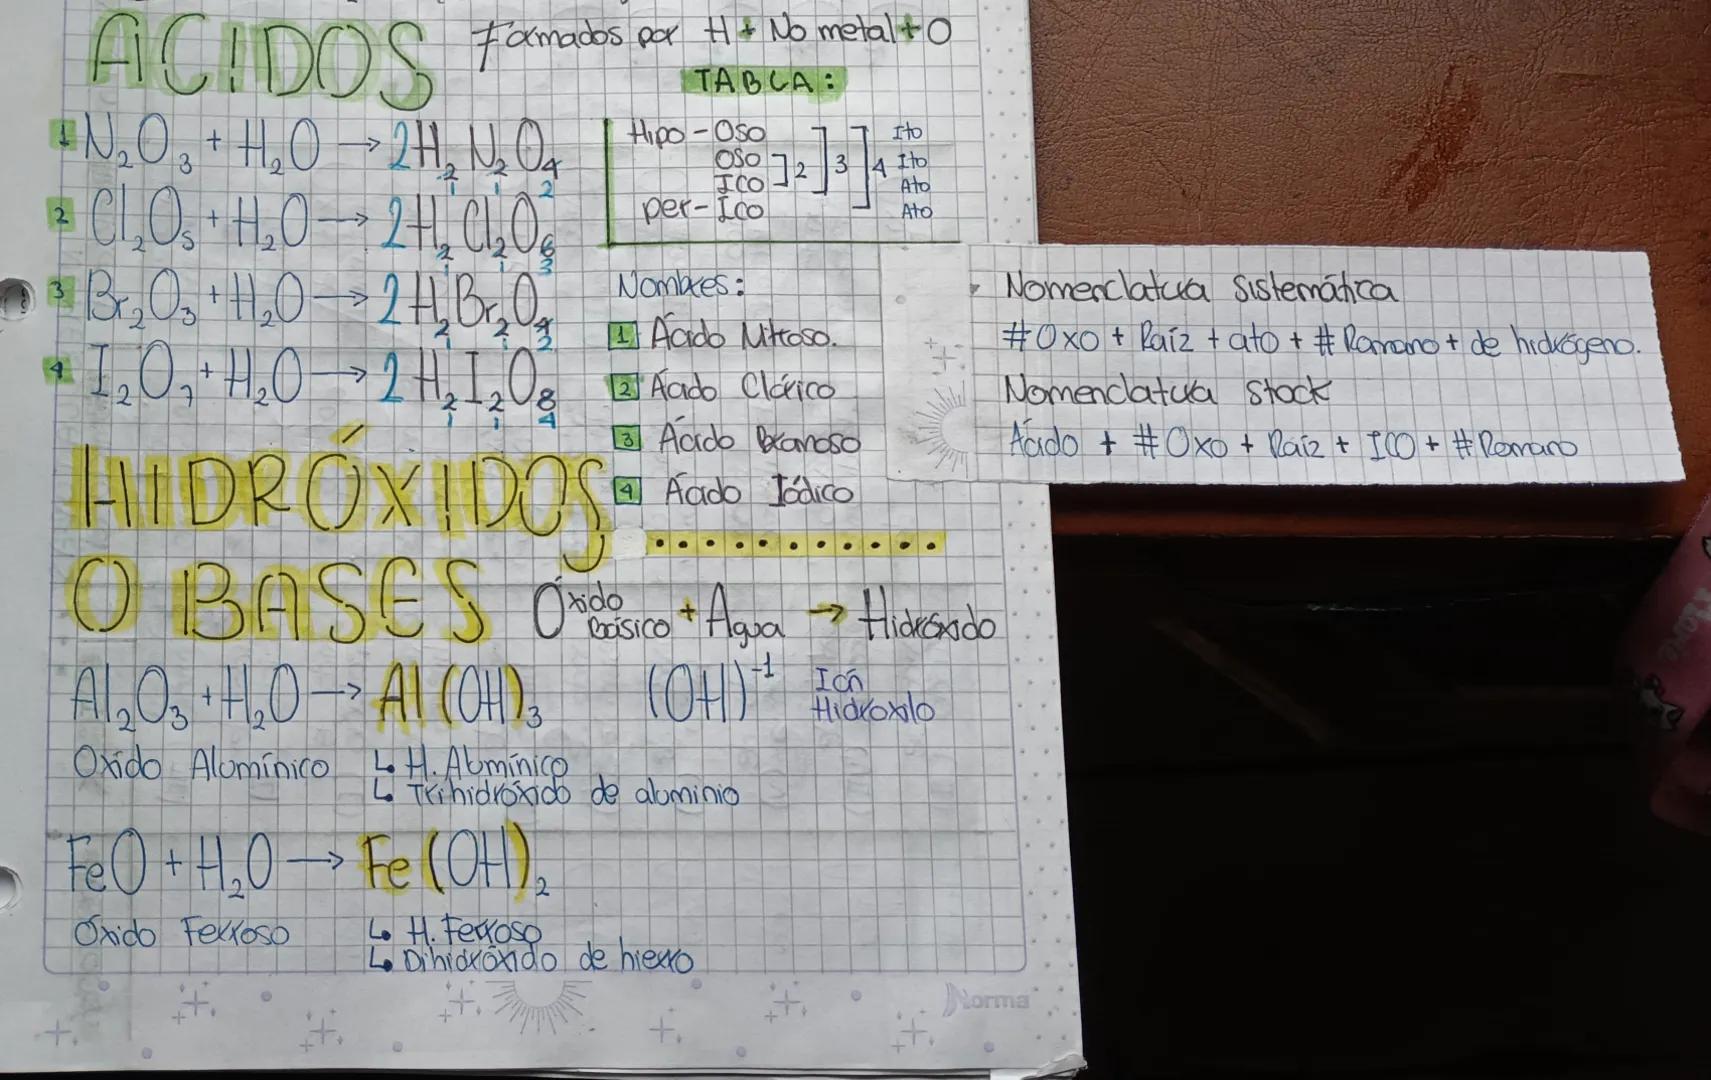 ÁCIDOS Formados por H + No metal + O
TABLA:
1 N₂O₃ + H₂O → 2H₂N₂O₄
1 1 2
2 Cl₂O₅ + H₂O → 2H₂Cl₂O₆
1 1 3
3 Br₂O₃ + H₂O → 2H₂Br₂O₄
1 1 2
4 I₂O₇ + H₂O → 2H₂I₂O₈
1 1 4
Hipo - Oso Ito
Oso ]2 ]3 ]4 Ito
Ico Ato
per - Ico Ato
Nombres:
1 Ácido Nitroso.
2 Ácido Clórico
3 Ácido Bromoso
4 Ácido Iódico
Nomenclatura sistemática
#Oxo + Raíz + ato + #Romano + de hidrógeno.
Nomenclatura stock
Ácido + #Oxo + Raíz + ICO + #Romano
HIDRÓXIDOS
O BASES
Óxido Básico + Agua → Hidróxido
Al₂O₃ + H₂O → Al(OH)₃ (OH)⁻¹ Ión
Hidroxilo
Oxido Alumínico ↳ H. Alumínico
↳ Trihidróxido de aluminio
FeO + H₂O → Fe(OH)₂
Óxido Ferroso ↳ H. Ferroso
↳ Dihidróxido de hierro
Norma